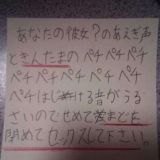 あなたの彼女?のあえぎ声
ときんたまのペチペチペチ
ペチペチペチペチペチペチ
ペチはじける音がうる
さいのでせめて窓まどは
閉めてセックスして下さい。